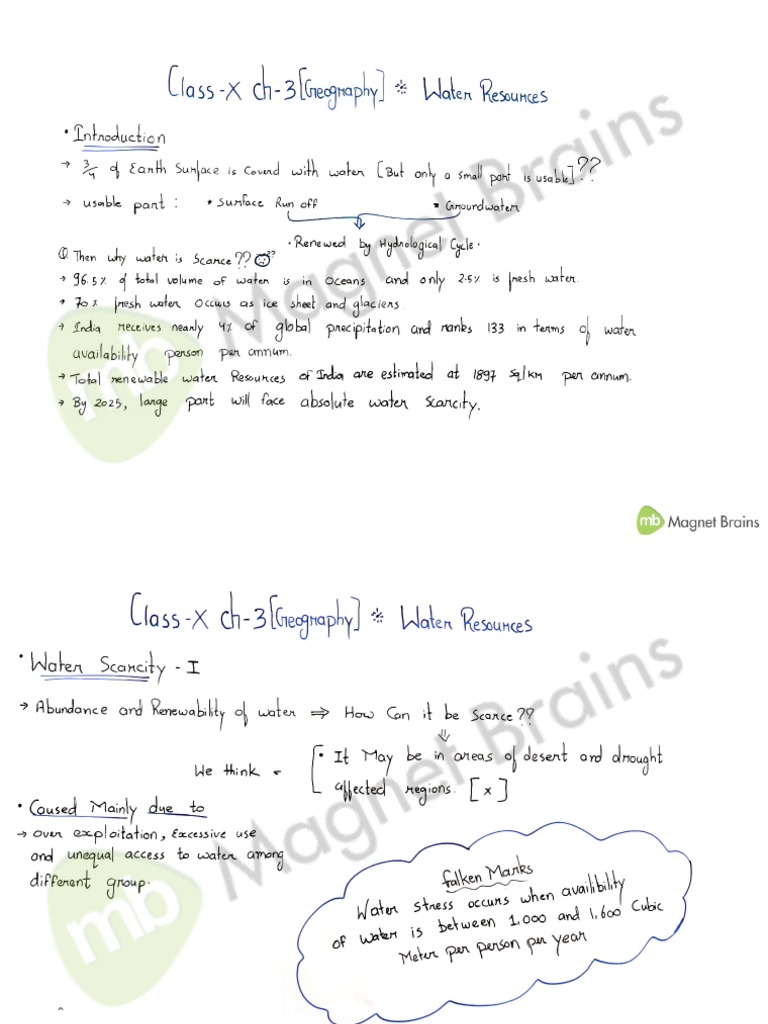 Class-X ch-3[Geography] * Water Resources
• Introduction
→ 3/4 of Earth Surface is Coverd with water [But only a small part is usable]??
→ usable part : • Surface Run off • Groundwater
• Renewed by Hydrological Cycle •
Q Then why water is Scarce ?? ??
→ 96.5% of total volume of water is in oceans and only 2.5% is fresh water.
→ 70% fresh water occurs as ice sheet and glaciers.
→ India receives nearly 4% of global precipitation and ranks 133 in terms of water
availability person per annum.
→ Total renewable water Resources of India are estimated at 1897 sq/km per annum.
→ By 2025, large part will face absolute water scarcity.
mb Magnet Brains
mb Magnet Brains
Class-X ch-3[Geography] * Water Resources
• Water Scarcity - I
→ Abundance and Renewability of water ⇒ How Can it be Scarce ??
We think - • It May be in areas of desert and drought
affected regions. [x]
• Caused Mainly due to
→ over exploitation, Excessive use
and unequal access to water among
different group.
falken Marks
Water stress occurs when availibility
of water is between 1,000 and 1,600 Cubic
Meter per person per year
mb Magnet Brains